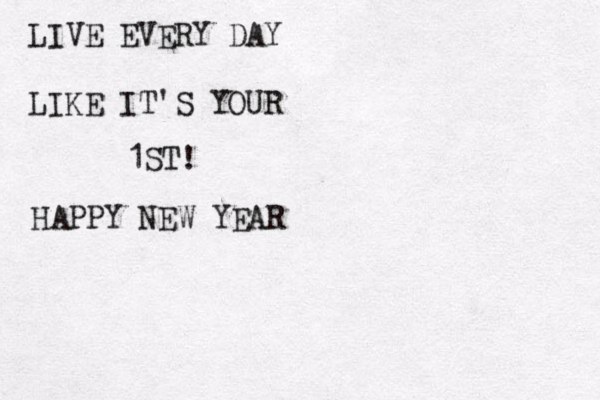 LIVE EVERY DAY
LIKE IT'S YOUR
1ST!
HAPPY NEW YEAR